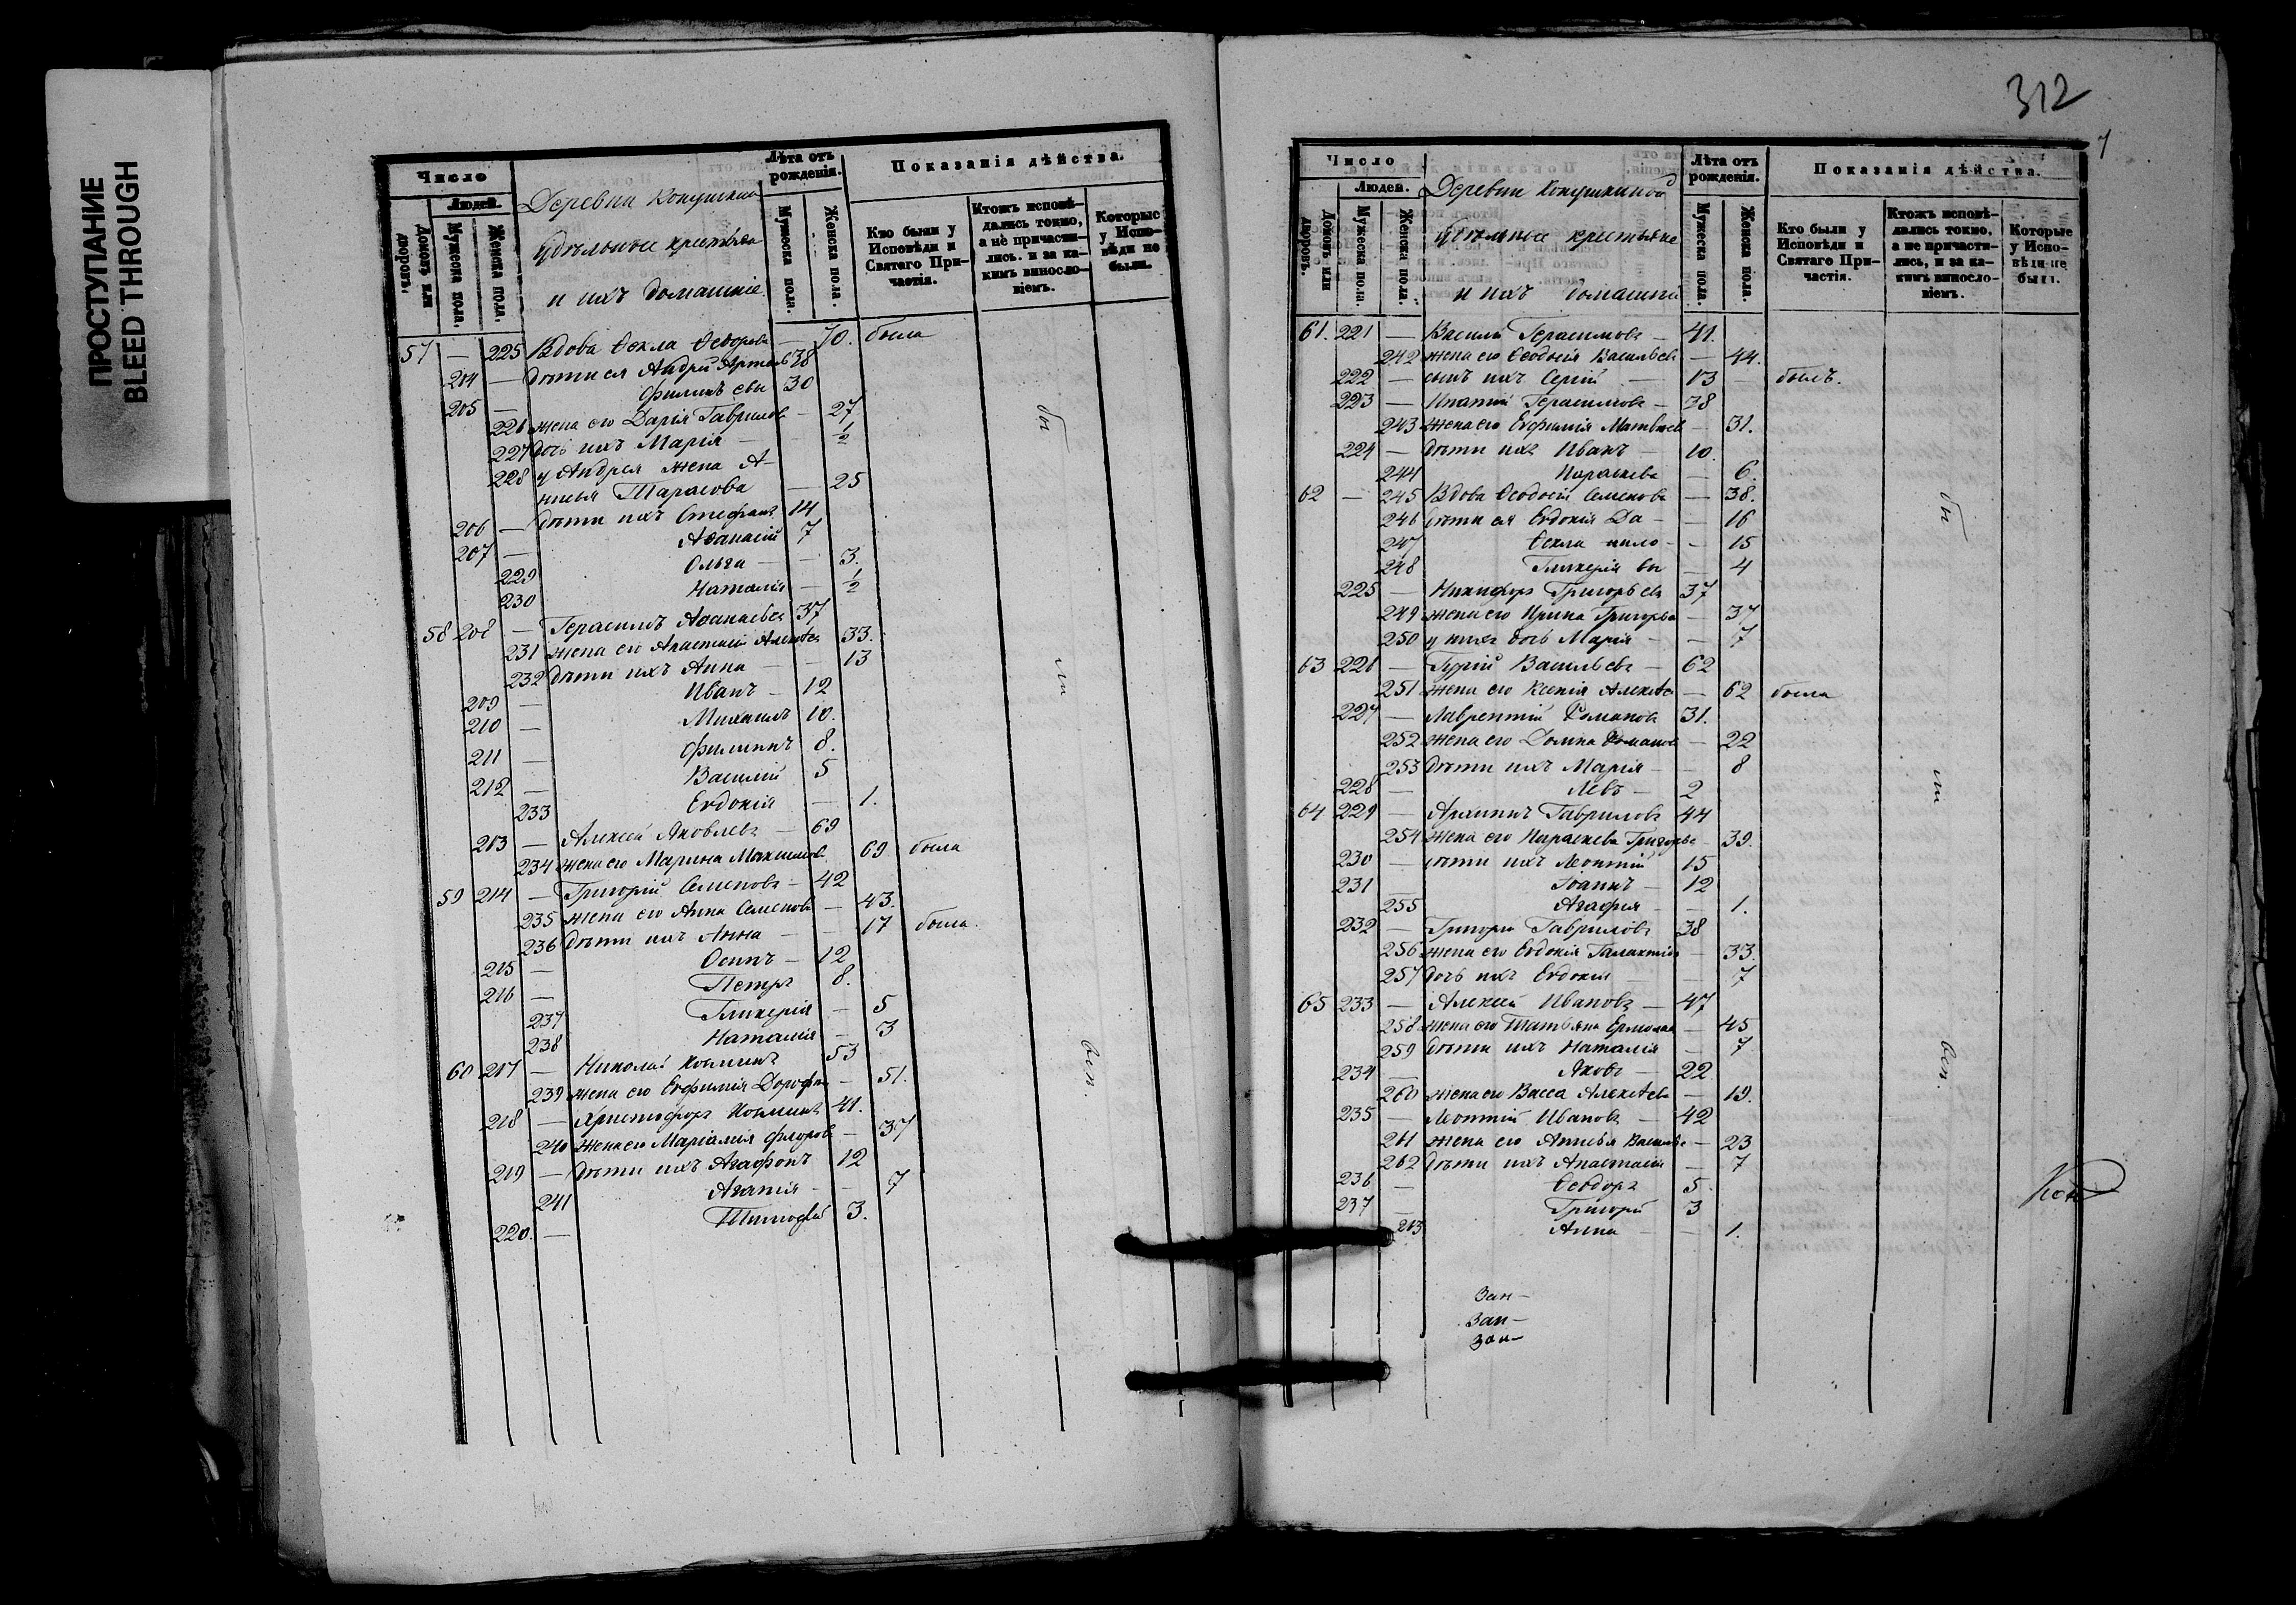 ПРОСТУПАНИЕ
BLEED THROUGH
Число
Людей.
Домовъ или дворовъ.
Мужеска пола.
Женска пола.
Деревни
Удѣльные крестьяне
и ихъ домашніе.
Лѣта отъ рожденія.
Мужеска пола.
Женска пола.
Показанія дѣйства.
Кто были у Исповѣди и Святаго Причастія.
Ктожъ исповѣдались токмо, а не причастились, и за какимъ винословіемъ.
Которые у Исповѣди не были.
57 — 225 Вдова Ѳекла Ѳедорова — 70. была
204 — дѣти ея Андрей 38
205 — Филипъ 30
226 жена его Дарія Гаврилова — 27
227 дочь ихъ Марія — 1/2
228 у Андрея жена А-
нисья Тарасова — 25
206 — дѣти ихъ Стефанъ 14
207 — Аѳанасій 7
229 Ольга — 3.
230 Наталія — 1/2
58 208 — Герасимъ Аѳанасьевъ 37
231 жена его Анастасія Алексѣева 33.
232 дѣти ихъ Анна — 13
209 — Иванъ — 12
210 — Михаилъ 10.
211 — Филиппъ 8.
212 — Василій 5
233 Евдокія — 1.
213 — Алексѣй Яковлевъ — 69
234 жена его Марина Максимова 69. была
59 214 — Григорій Семеновъ — 42
235 жена его Анна Семенова — 43.
236 дѣти ихъ Анна — 17 была.
215 — Осипъ — 12
216 — Петръ 8.
237 Гликерія — 5
238 Наталія — 3
60 217 — Николай 53
239 жена его Евфимія — 51.
218 — Христофоръ 41.
240 жена его Маріамія Флорова — 37
219 — дѣти ихъ Агафонъ 12
241 Агапія — 7
220. — Тимоѳей 3.
бы
ли
вси.
312
7
Число
Людей.
Домовъ или дворовъ.
Мужеска пола.
Женска пола.
Деревни
Удѣльные крестьяне
и ихъ домашніи
Лѣта отъ рожденія.
Мужеска пола.
Женска пола.
Показанія дѣйства.
Кто были у Исповѣди и Святаго Причастія.
Ктожъ исповѣдались токмо, а не причастились, и за какимъ винословіемъ.
Которые у Исповѣди не были.
61. 221 — Василій Герасимовъ — 41.
242 жена его Ѳеодосія Васильева — 44.
222 — сынъ ихъ Сергій — 13 — былъ.
223 — Ипатій Герасимовъ — 38
243 жена его Евфимія Матвѣева — 31.
224 — дѣти ихъ Иванъ — 10.
244 Параскева — 6.
62 — 245 Вдова Ѳеодосія Семенова — 38.
246 дѣти ея Евдокія Да- — 16
247 Ѳекла нило- — 15
248 Гликерія вы — 4
225 — Никифоръ Григорьевъ 37
249 жена его Ирина Григорьева — 37
250 у нихъ дочь Марія — 7
63 226 — Гурій Васильевъ — 62
251 жена его Ксенія Алексѣева — 62 была
227 — Лаврентій Романовъ 31.
252 жена его Домна — 22
253 дѣти ихъ Марія — 8
228 — Левъ — 2
64 229 — Архиппъ Гавриловъ 44
254 жена его Параскева Григорьева 39.
230 — дѣти ихъ Леонтій 15
231 — Іоаннъ — 12
255 Агафія — 1.
232 — Григорій Гавриловъ 38
256 жена его Евдокія — 33.
257 дочь ихъ Евдокія — 7
65 233 — Алексѣй Ивановъ — 47
258 жена его Татьяна — 45
259 дѣти ихъ Наталія — 7
234 — Яковъ — 22
260 жена его Васса Алексѣева — 19.
235 — Леонтій Ивановъ — 42
261 жена его Анисья Васильева — 23
262 дѣти ихъ Анастасія — 7
236 — Ѳеодоръ 5.
237 — Григорій 3
263 Анна — 1.
бы
ли
вси.
Зан—
Зан—
Зан—